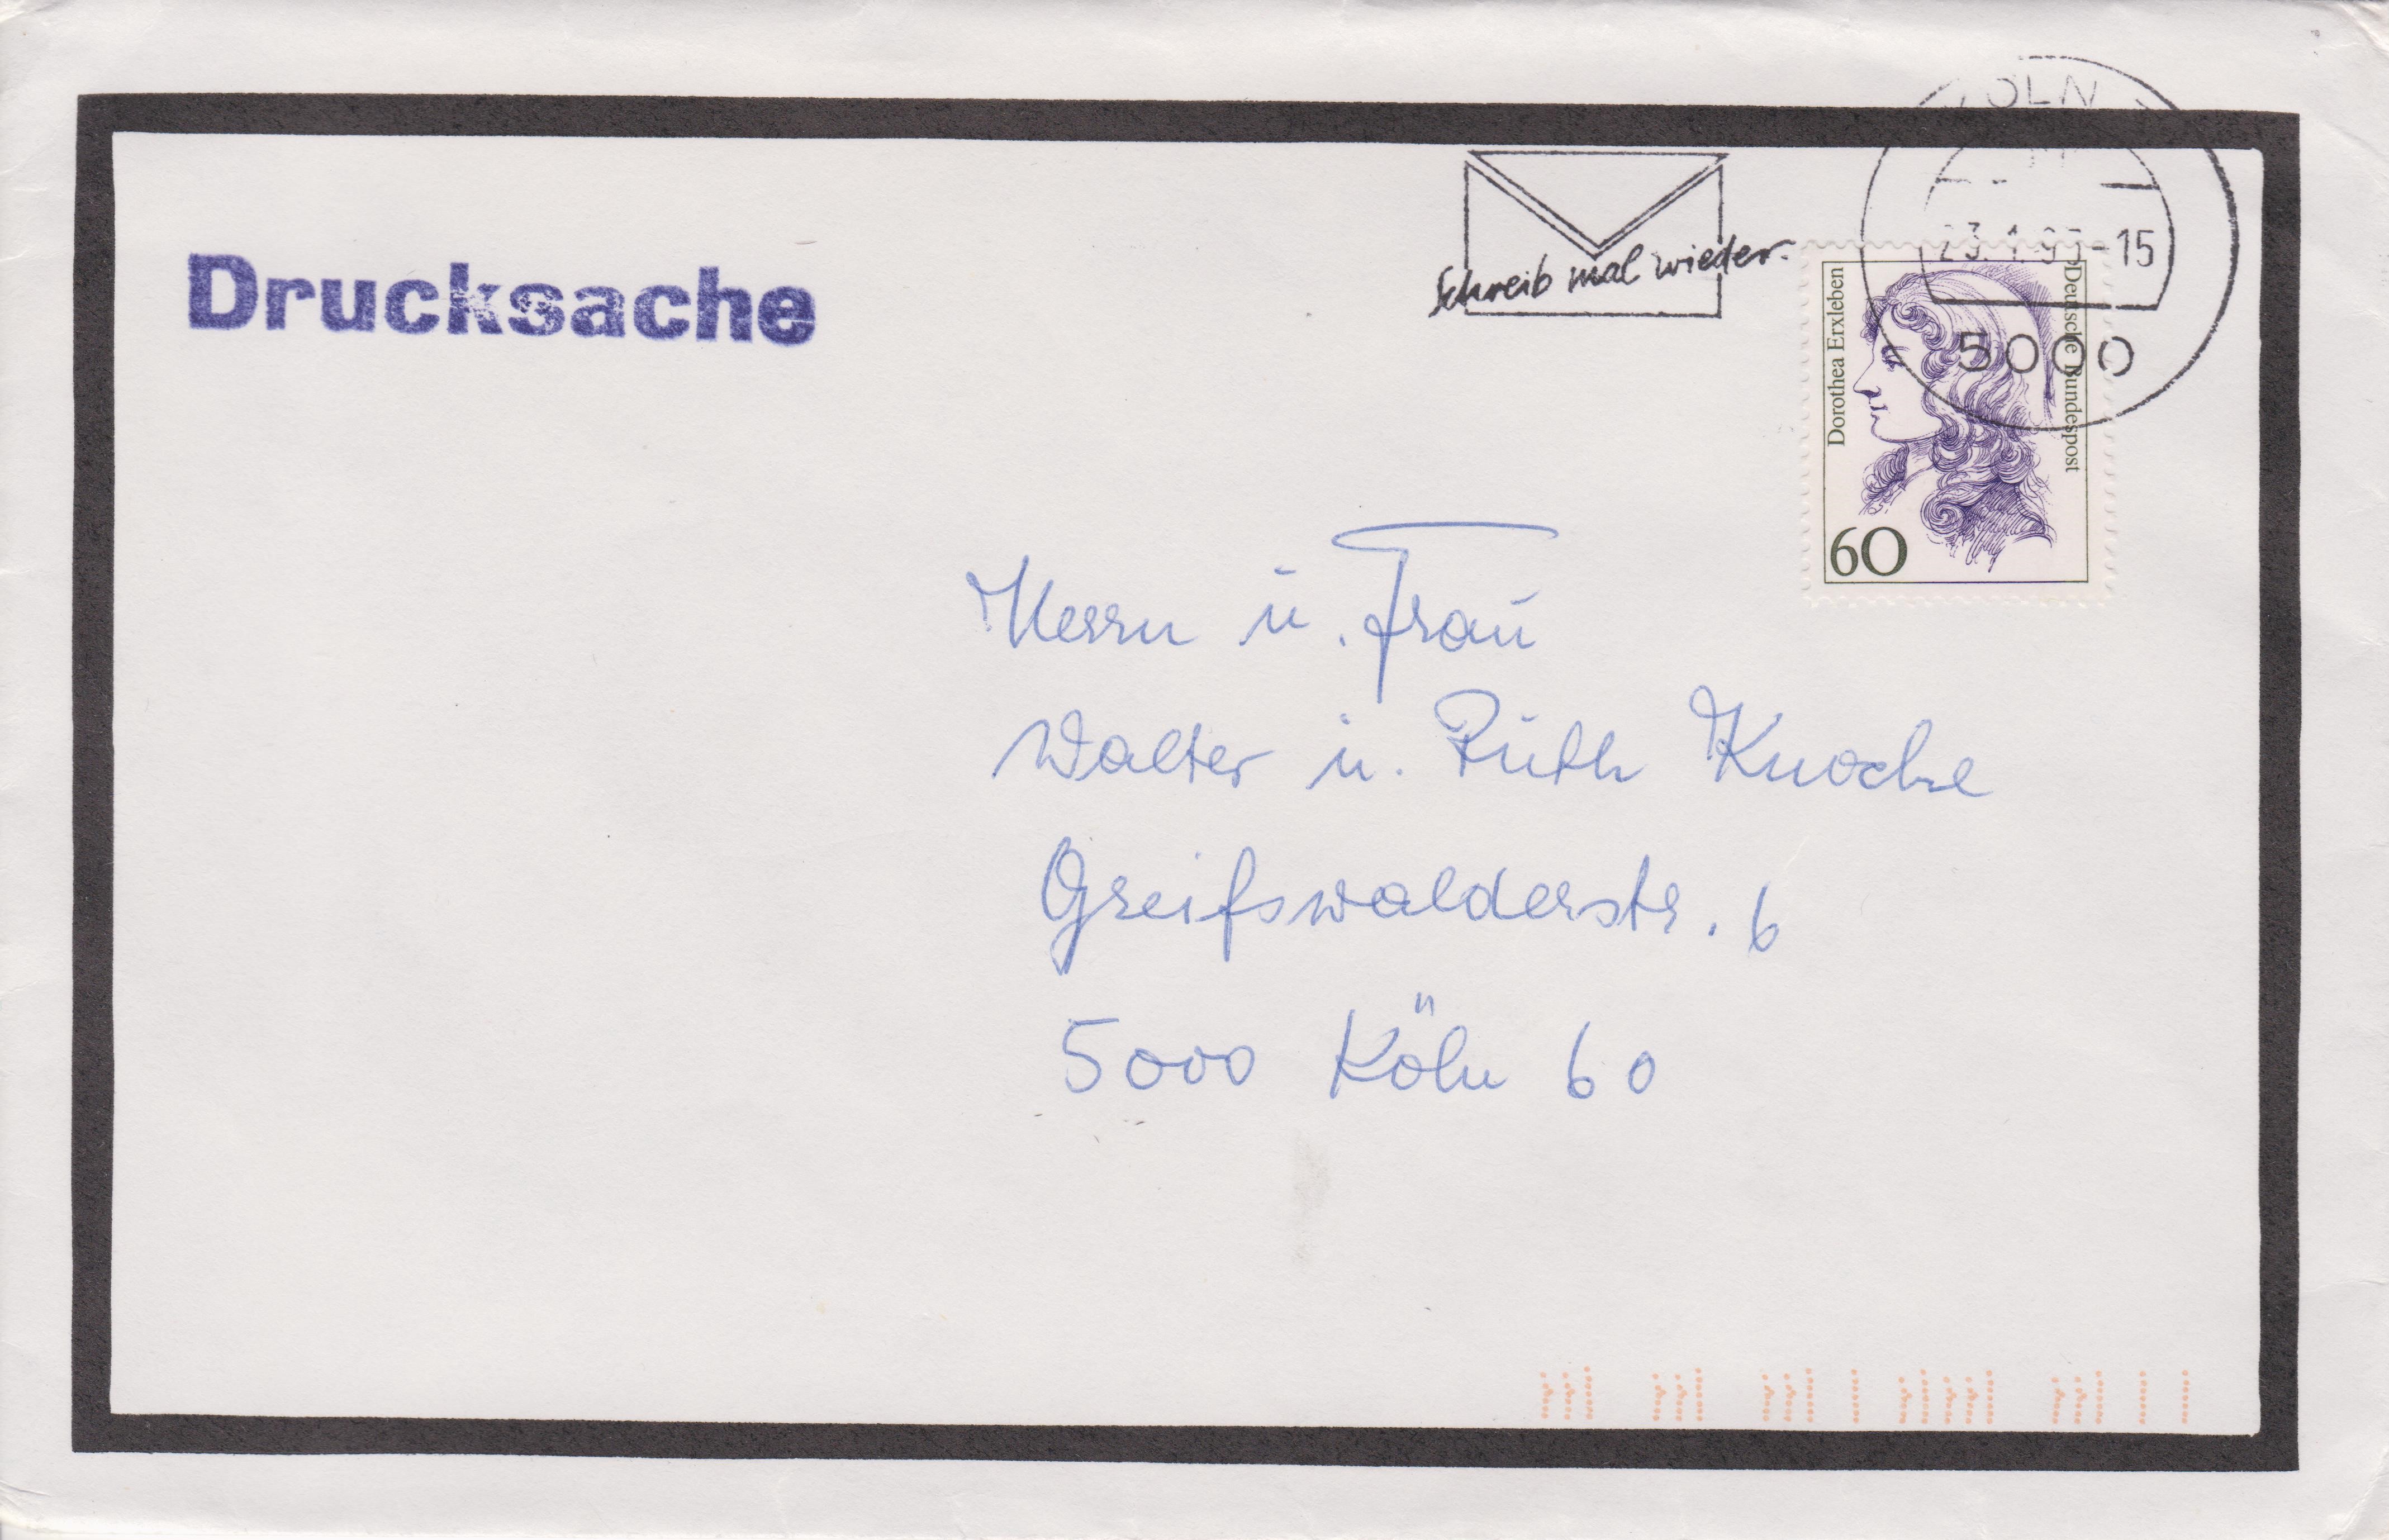 KÖLN
23.1.93-15
5000
Schreib mal wieder.
Drucksache
Dorothea Erxleben
Deutsche Bundespost
60
Herrn u. Frau
Walter u. Ruth Knoche
Greifswalderstr. 6
5000 Köln 60